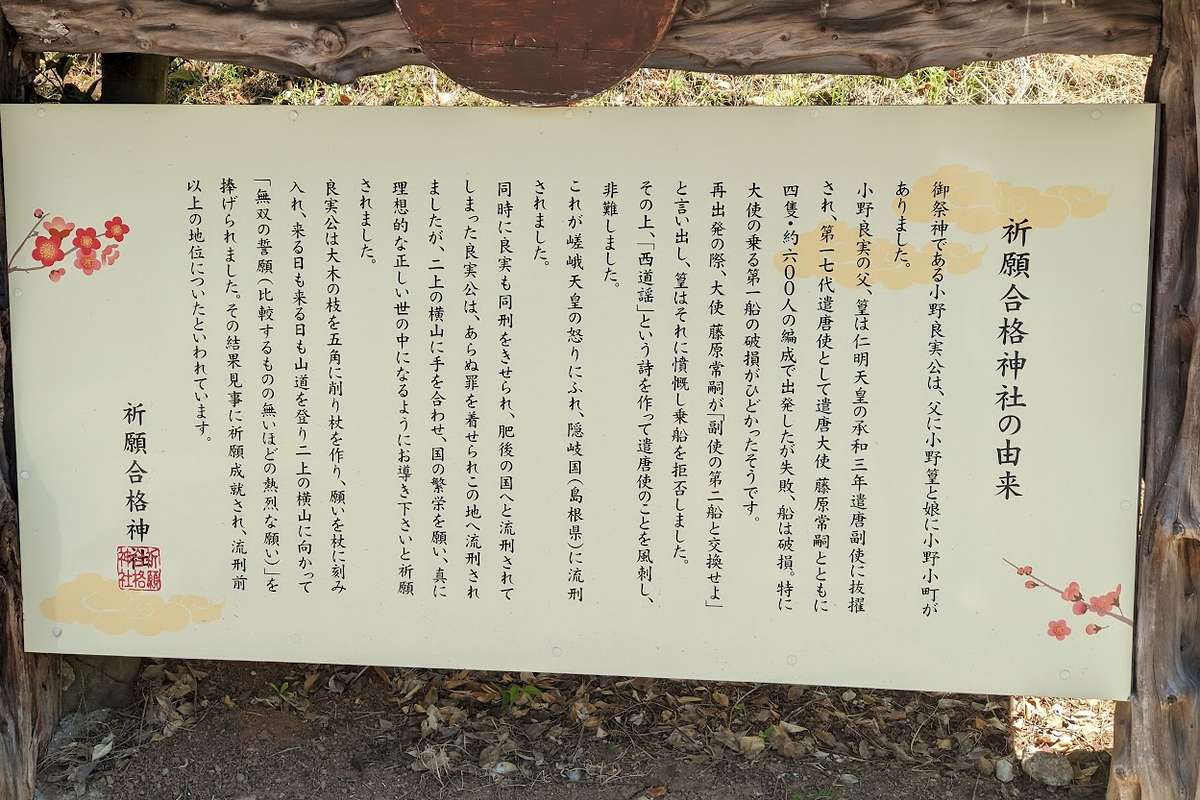 祈願合格神社の由来
御祭神である小野良実公は、父に小野篁と娘に小野小町が
ありました。
小野良実の父、篁は仁明天皇の承和三年遣唐副使に抜擢
され、第一七代遣唐使として遣唐大使 藤原常嗣とともに
四隻・約六〇〇人の編成で出発したが失敗、船は破損。特に
大使の乗る第一船の破損がひどかったそうです。
再出発の際、大使 藤原常嗣が「副使の第二船と交換せよ」
と言い出し、篁はそれに憤慨し乗船を拒否しました。
その上、「西道謡」という詩を作って遣唐使のことを風刺し、
非難しました。
これが嵯峨天皇の怒りにふれ、隠岐国(島根県)に流刑
されました。
同時に良実も同刑をきせられ、肥後の国へと流刑されて
しまった良実公は、あらぬ罪を着せられこの地へ流刑され
ましたが、二上の横山に手を合わせ、国の繁栄を願い、真に
理想的な正しい世の中になるようにお導き下さいと祈願
されました。
良実公は大木の枝を五角に削り杖を作り、願いを杖に刻み
入れ、来る日も来る日も山道を登り二上の横山に向かって
「無双の誓願(比較するものの無いほどの熱烈な願い)」を
捧げられました。その結果見事に祈願成就され、流刑前
以上の地位についたといわれています。
祈願合格神社
祈願
合格
神社